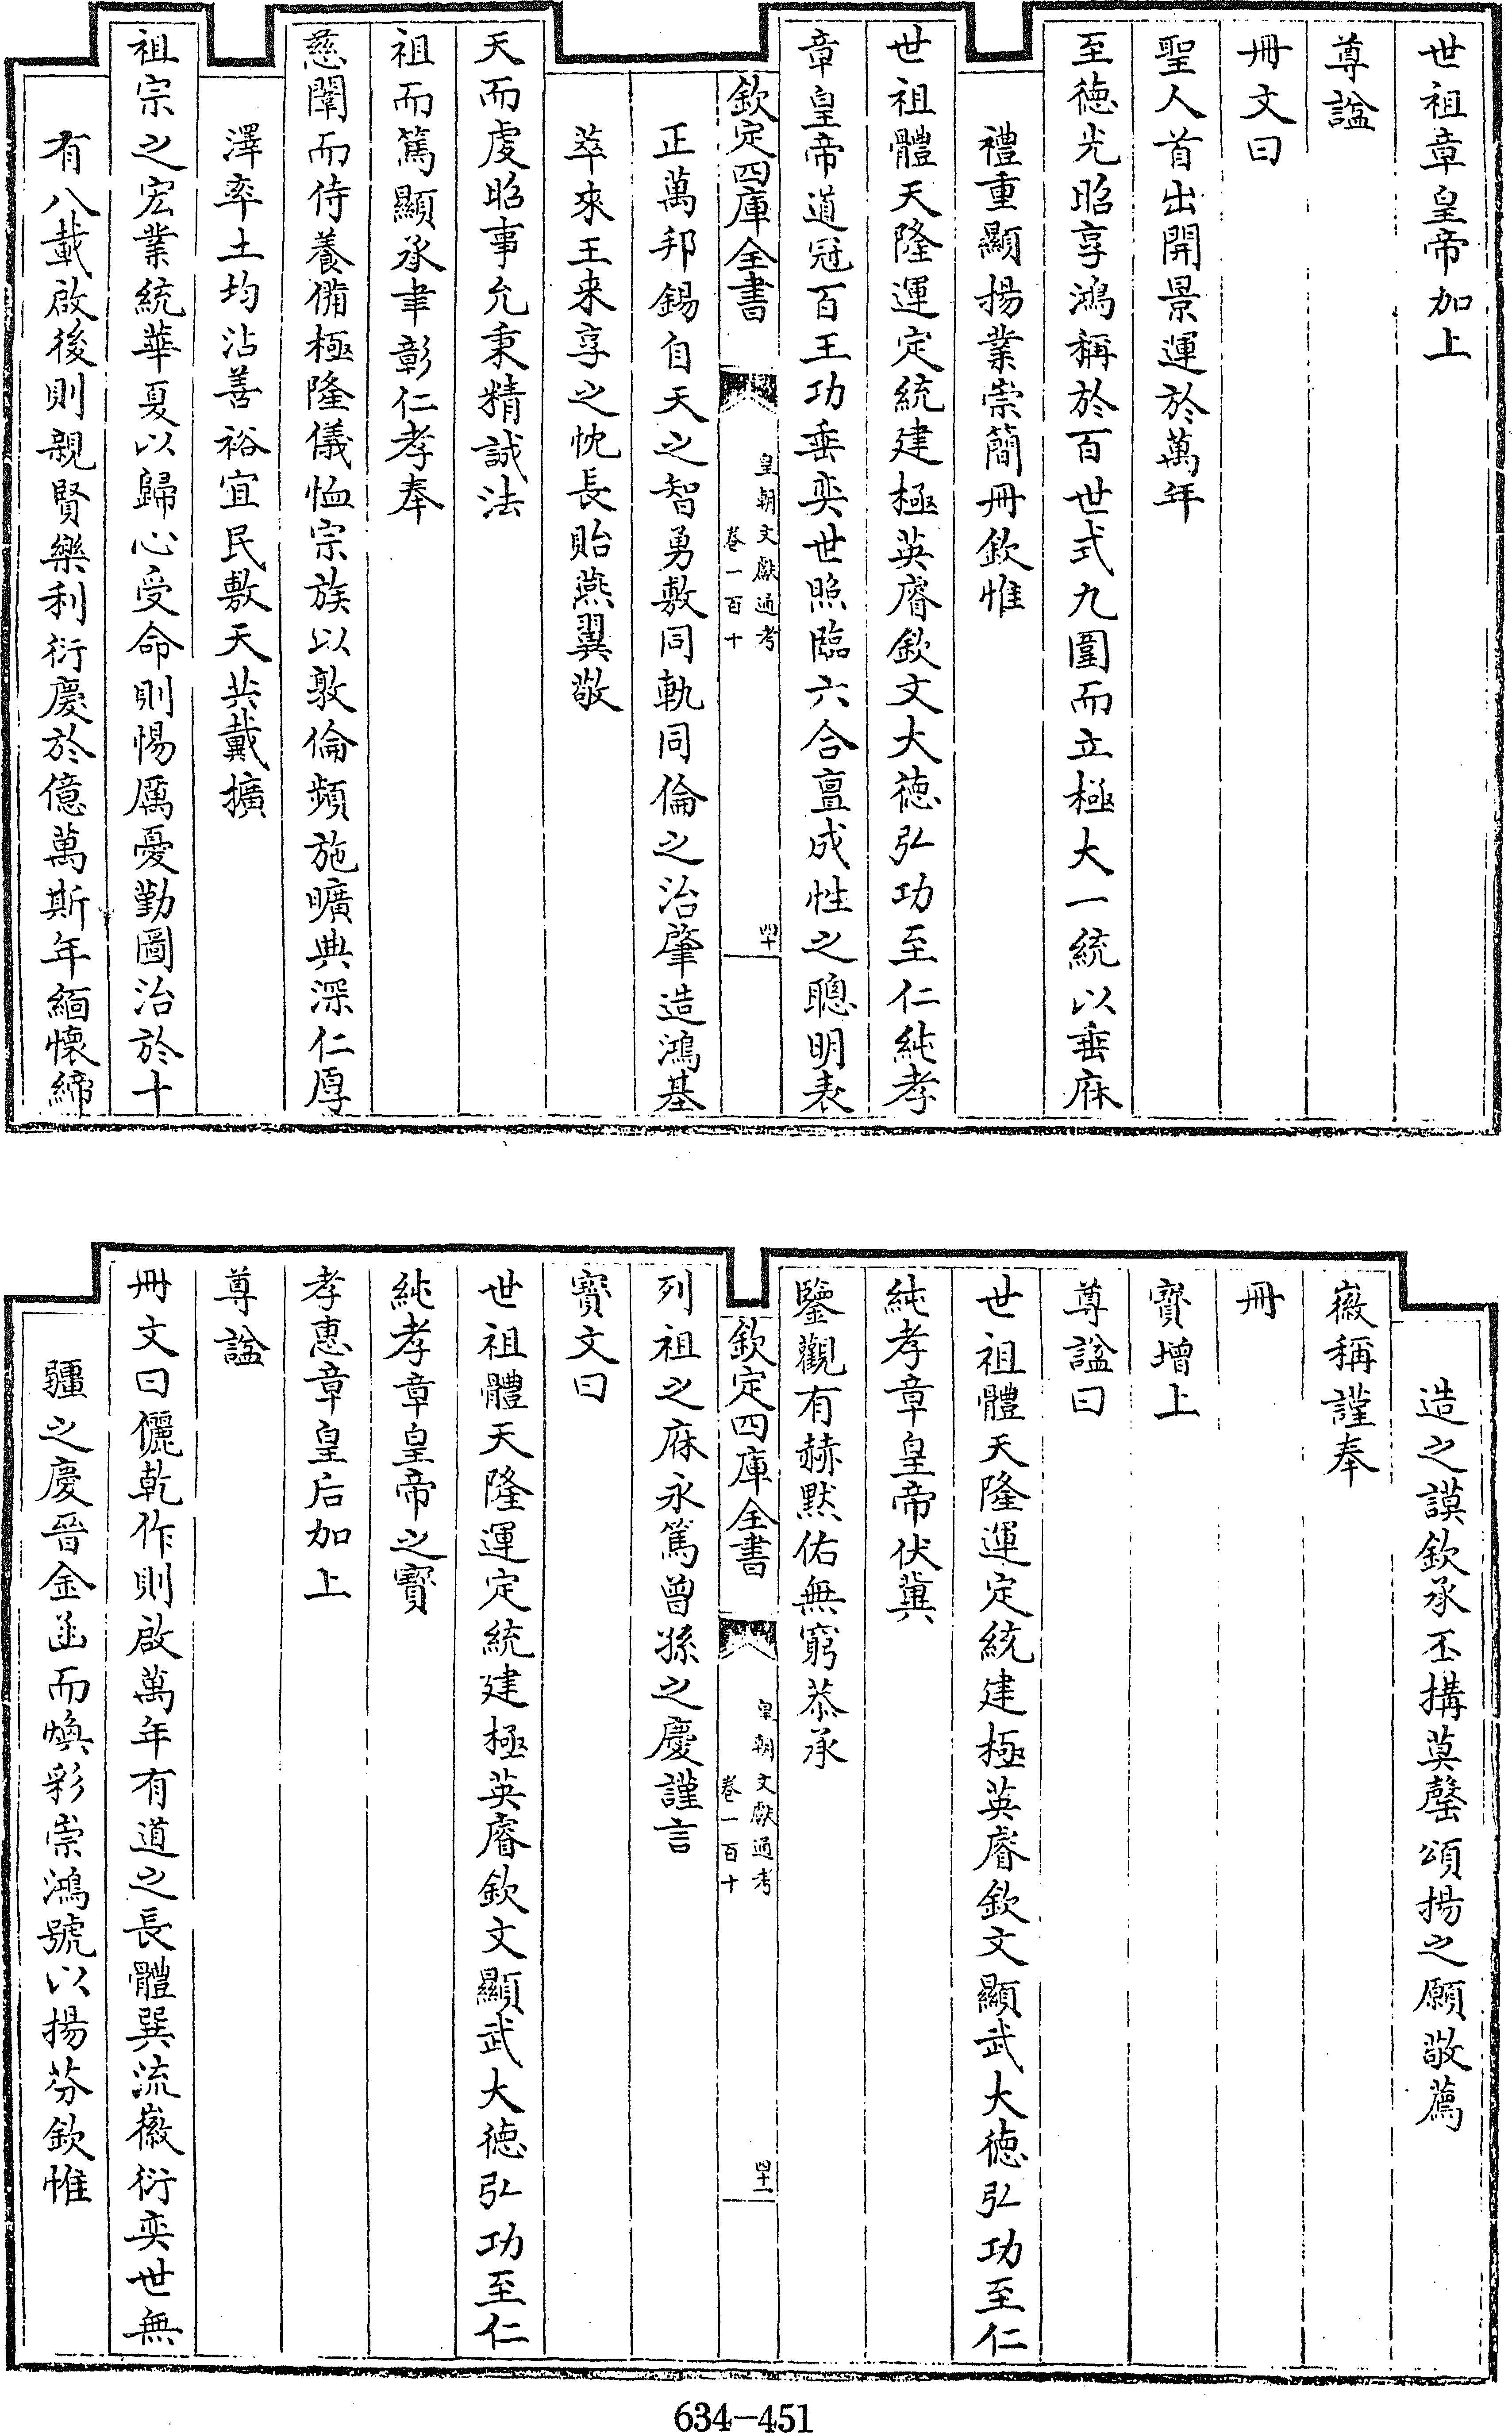 世祖章皇帝加上
尊諡
冊文曰
聖人首出開景運於萬年
至德光昭享鴻稱於百世式九圍而立極大一統以垂庥
禮重顯揚業崇簡冊欽惟
世祖體天隆運定統建極英睿欽文大德弘功至仁純孝
章皇帝道冠百王功垂奕世照臨六合亶成性之聰明表
欽定四庫全書
皇朝文獻通考
卷一百十
四十
正萬邦錫自天之智勇敷同軌同倫之治肇造鴻基
萃來王来享之忱長貽燕翼敬
天而虔昭事允秉精誠法
祖而篤顯承聿彰仁孝奉
慈闈而侍養備極隆儀恤宗族以敦倫頻施曠典深仁厚
澤率土均沾善裕宜民敷天共戴擴
祖宗之宏業統華夏以歸心受命則惕厲憂勤圖治於十
有八載啟後則親賢樂利衍慶於億萬斯年緬懷締
造之謨欽承丕搆莫罄頌揚之願敬薦
徽稱謹奉
冊
寶增上
尊諡曰
世祖體天隆運定統建極英睿欽文顯武大德弘功至仁
純孝章皇帝伏冀
鑒觀有赫默佑無窮恭承
欽定四庫全書
皇朝文獻通考
卷一百十
四十一
列祖之庥永篤曾孫之慶謹言
寶文曰
世祖體天隆運定統建極英睿欽文顯武大德弘功至仁
純孝章皇帝之寶
孝惠章皇后加上
尊諡
冊文曰儷乾作則啟萬年有道之長體巽流徽衍奕世無
疆之慶晉金函而煥彩崇鴻號以揚芬欽惟
634-451